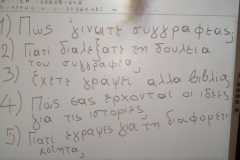 1) Πως γίνατε συγγραφέας;
2) Γιατί διαλέξατε τη δουλειά
του συγραφέα;
3) Έχετε γράψει αλλα βιβλία;
4) Πώς σας έρχονται οι ιδέες
για τις ιστορίες;
5) Γιατί έγραψες για τη διαφορετι
κότητα;